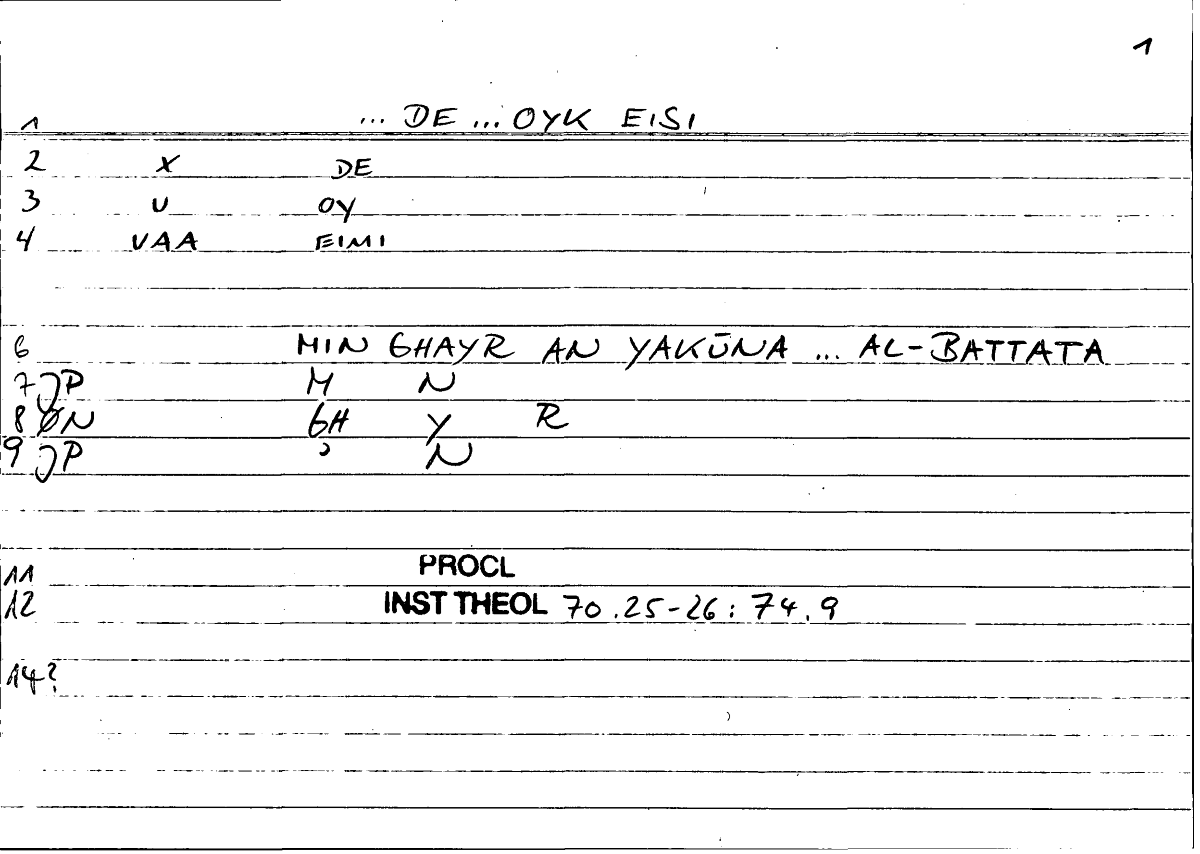 1
1 ... DE ... OYK EISI
2 X DE
3 U OY
4 VAA EIMI
6 MIN GHAYR AN YAKŪNA ... AL-BATTATA
7 JP M N
8 ØN GH Y R
9 JP ʾ N
11 PROCL
12 INST THEOL 70.25-26: 74.9
14?